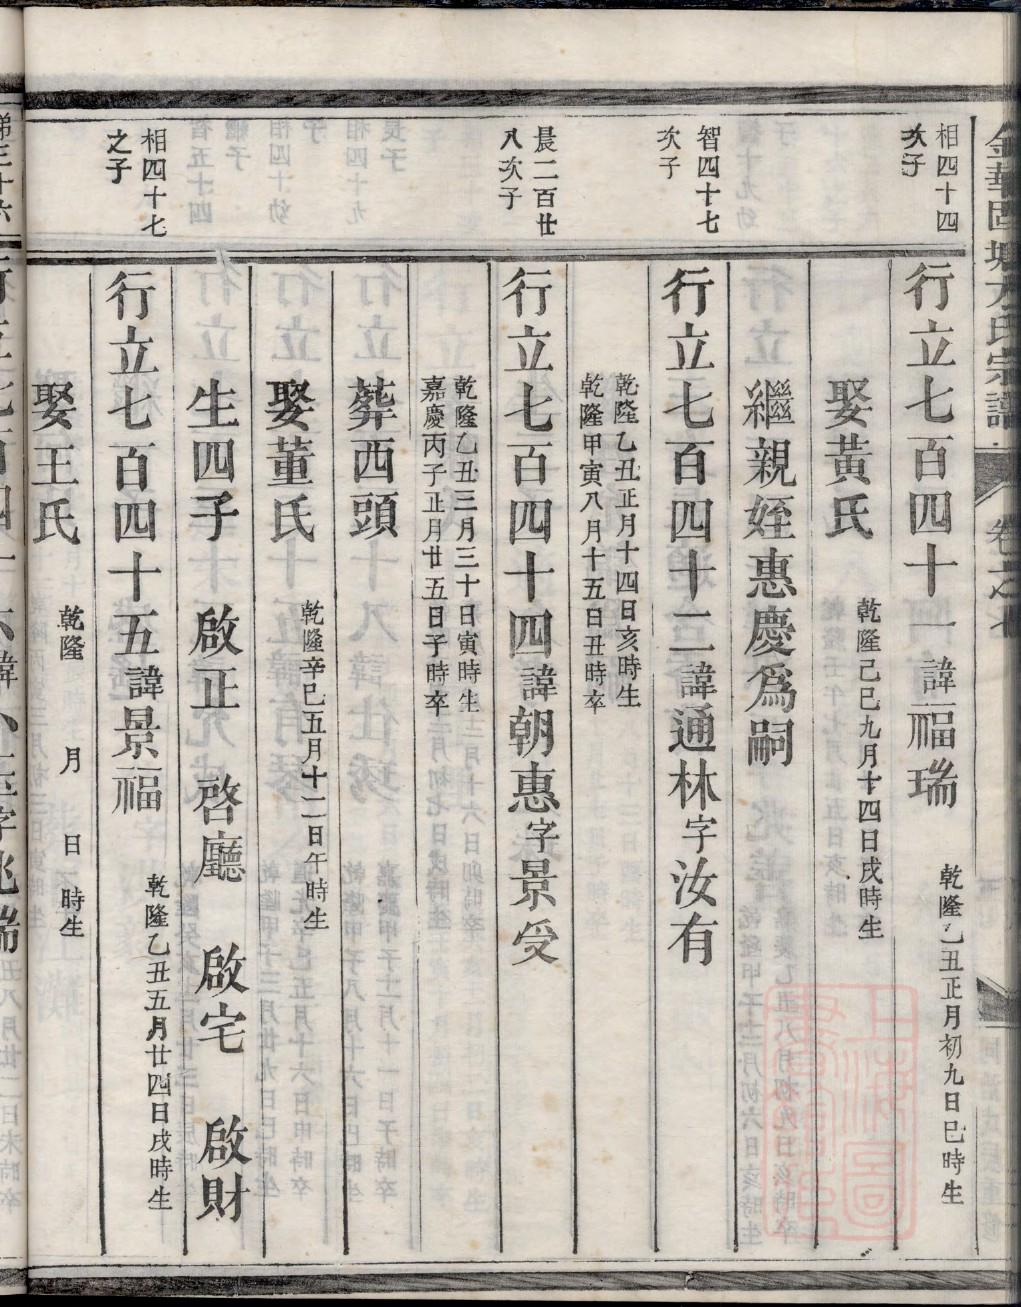 相四十四
次子
行立七百四十一諱福瑞
乾隆乙丑正月初九日巳時生
娶黃氏
乾隆己巳九月十四日戌時生
繼親姪惠慶爲嗣
智四十七
次子
行立七百四十二諱通林字汝有
乾隆乙丑正月十四日亥時生
乾隆甲寅八月十五日丑時卒
晨二百廿
八次子
行立七百四十四諱朝惠字景受
乾隆乙丑三月三十日寅時生
嘉慶丙子正月廿五日子時卒
葬西頭
娶董氏
乾隆辛巳五月十二日午時生
生四子 啟正 啓廳 啟宅 啟財
相四十七
之子
行立七百四十五諱景福
乾隆乙丑五月廿四日戌時生
娶王氏
乾隆 月 日 時生